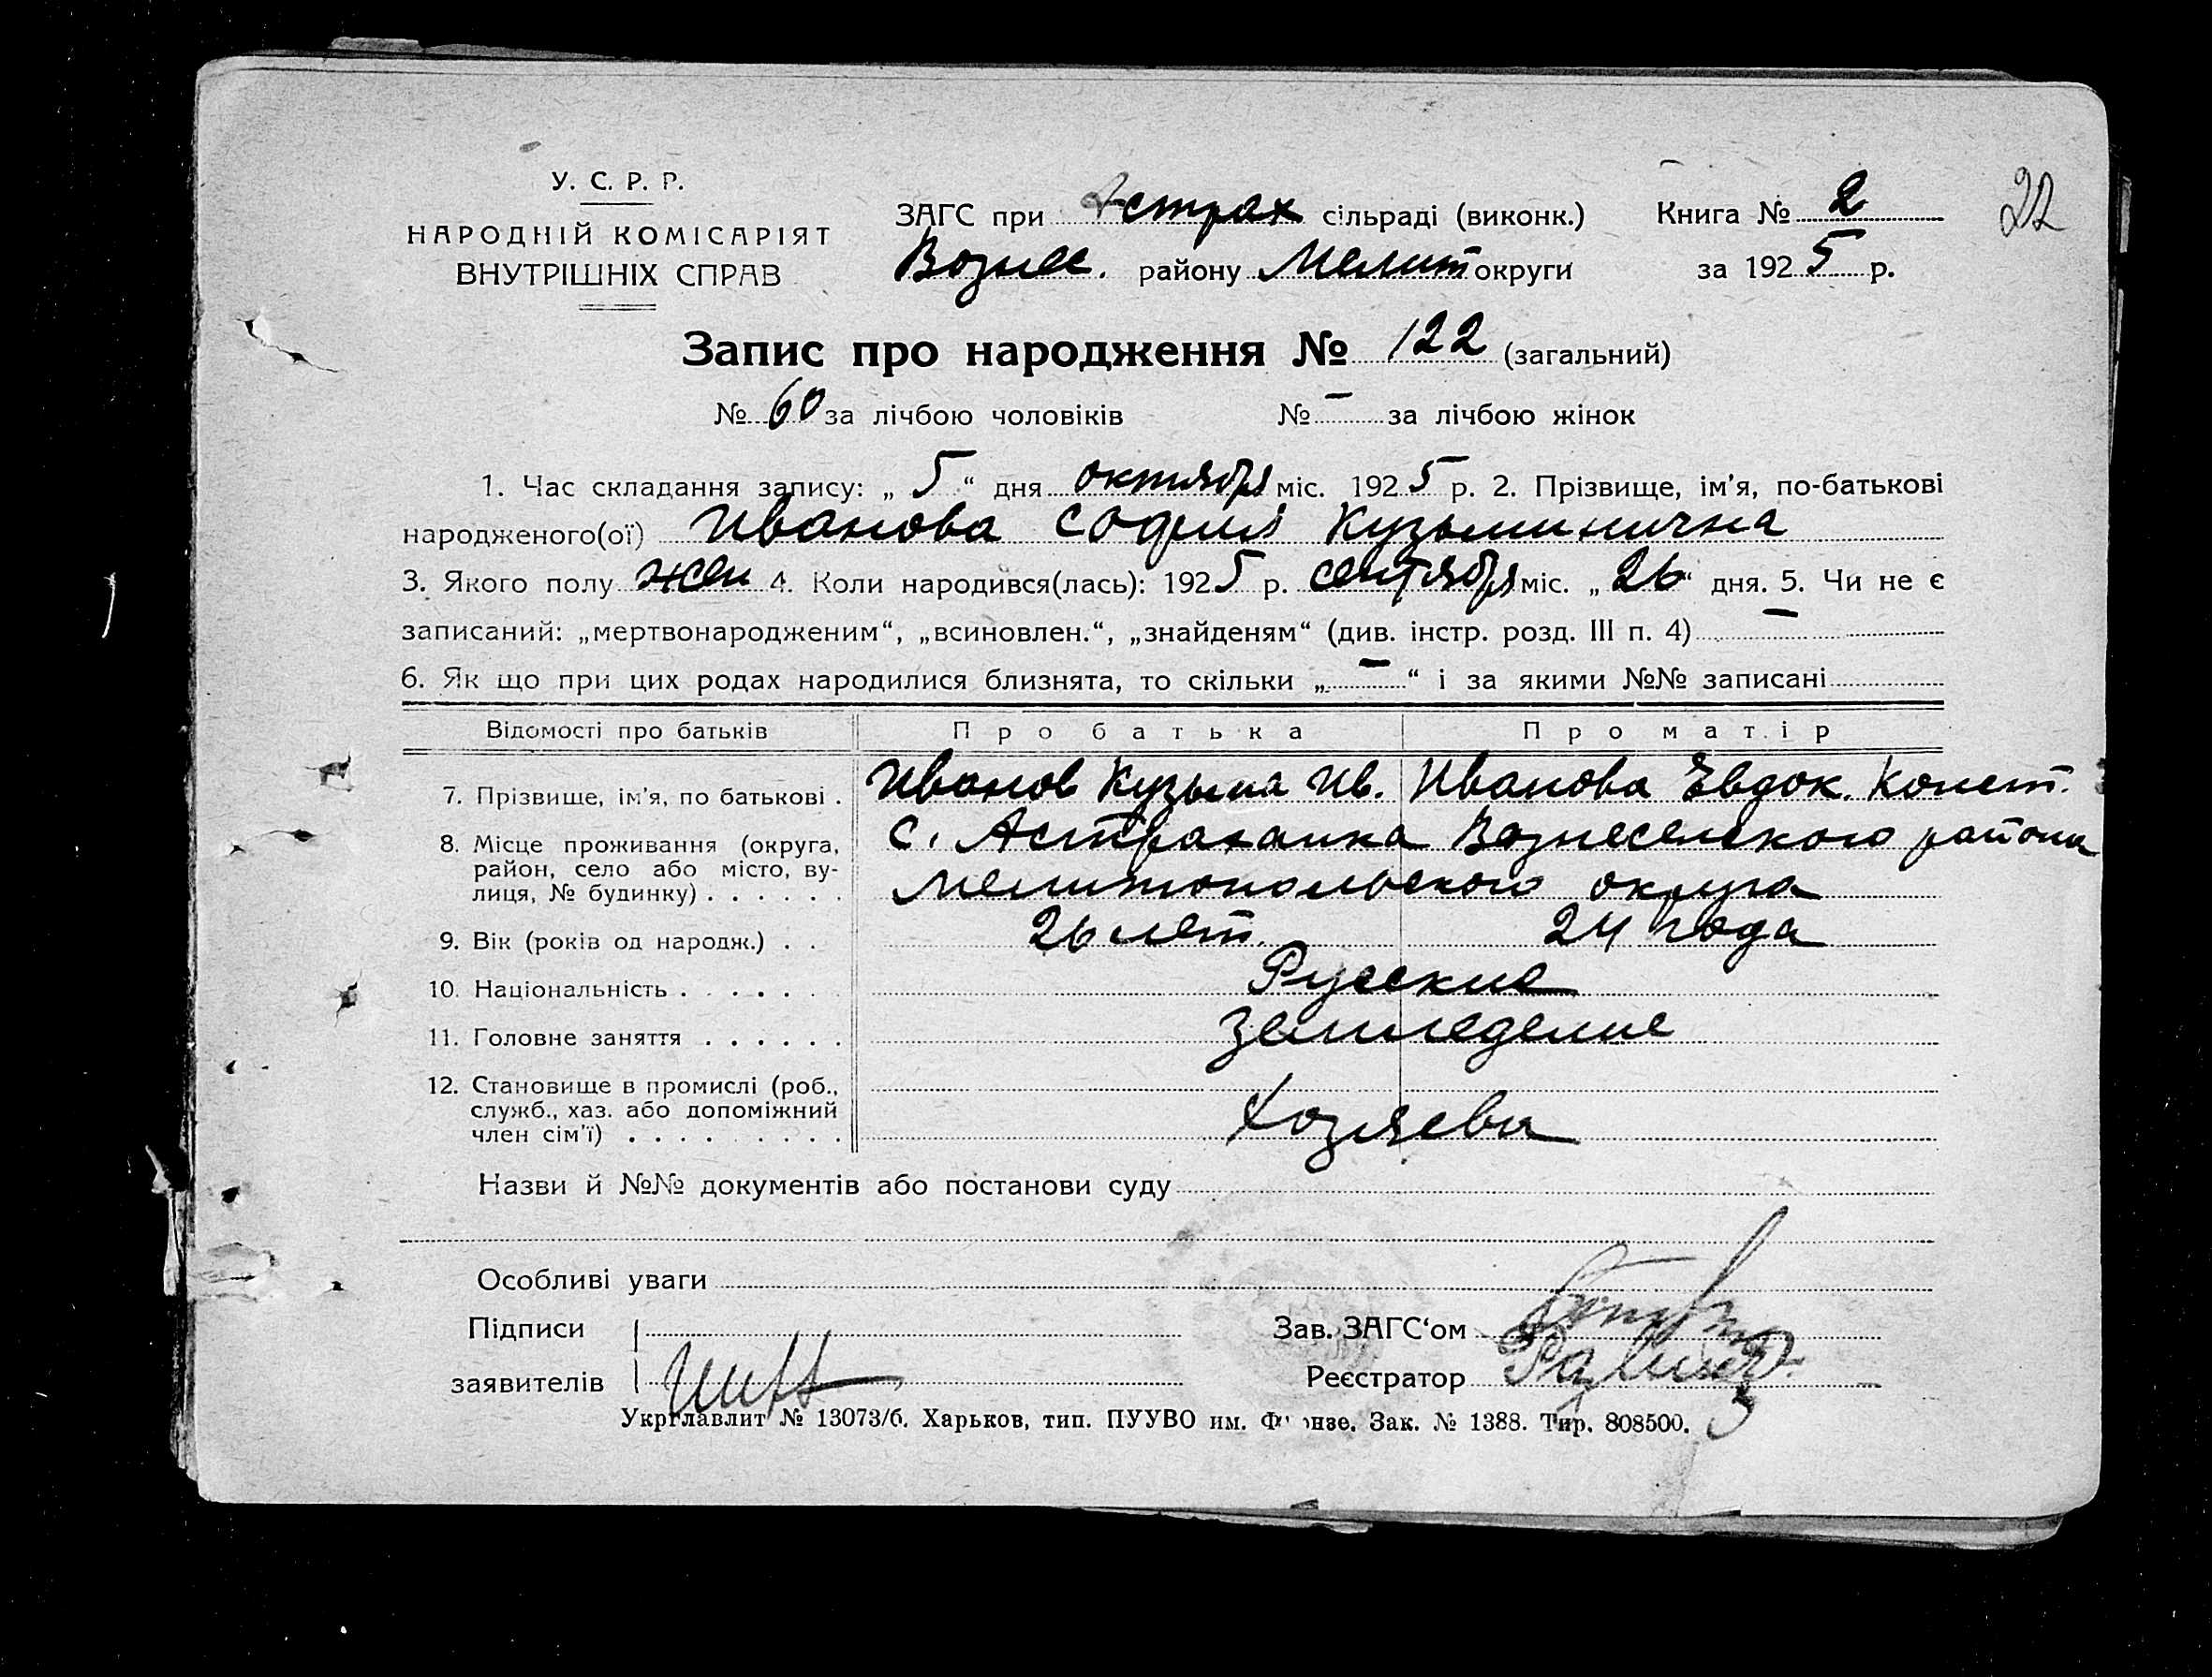 22
У. С. Р. Р.
НАРОДНІЙ КОМІСАРІЯТ
ВНУТРІШНІХ СПРАВ
ЗАГС при Астрах сільраді (виконк.)
Вознес. району Мелит округи
Книга № 2
за 1925 р.
Запис про народження № 122 (загальний)
№ 60 за лічбою чоловіків № – за лічбою жінок
1. Час складання запису: „ 5 “ дня октября міс. 1925 р. 2. Прізвище, ім'я, по-батькові
народженого(ої) Иванова София Кузьминична
3. Якого полу жен 4. Коли народився(лась): 1925 р. сентября міс. „ 26 “ дня. 5. Чи не є
записаний: „мертвонародженим“, „всиновлен.“, „знайденям“ (див. інстр. розд. III п. 4) –
6. Як що при цих родах народилися близнята, то скільки „ – “ і за якими №№ записані
Відомості про батьків Про батька Про матір
7. Прізвище, ім'я, по батькові . Иванов Кузьма Ив. Иванова Евдок. Конст.
8. Місце проживання (округа, с. Астраханка Вознесенского района
район, село або місто, ву-
лиця, № будинку) . . . . . . Мелитопольского округа
9. Вік (років од народж.) . . 26 лет. 24 года
10. Національність . . . . . . Русские
11. Головне заняття . . . . . . Земледелие
12. Становище в промислі (роб.,
служб., хаз. або допоміжний
член сім'ї) . . . . . . . . . Хозяева
Назви й №№ документів або постанови суду
Особливі уваги
Підписи
заявителів
Зав. ЗАГС‘ом
Реєстратор
Укрглавлит № 13073/б. Харьков, тип. ПУУВО им. Фрунзе. Зак. № 1388. Тир. 808500.